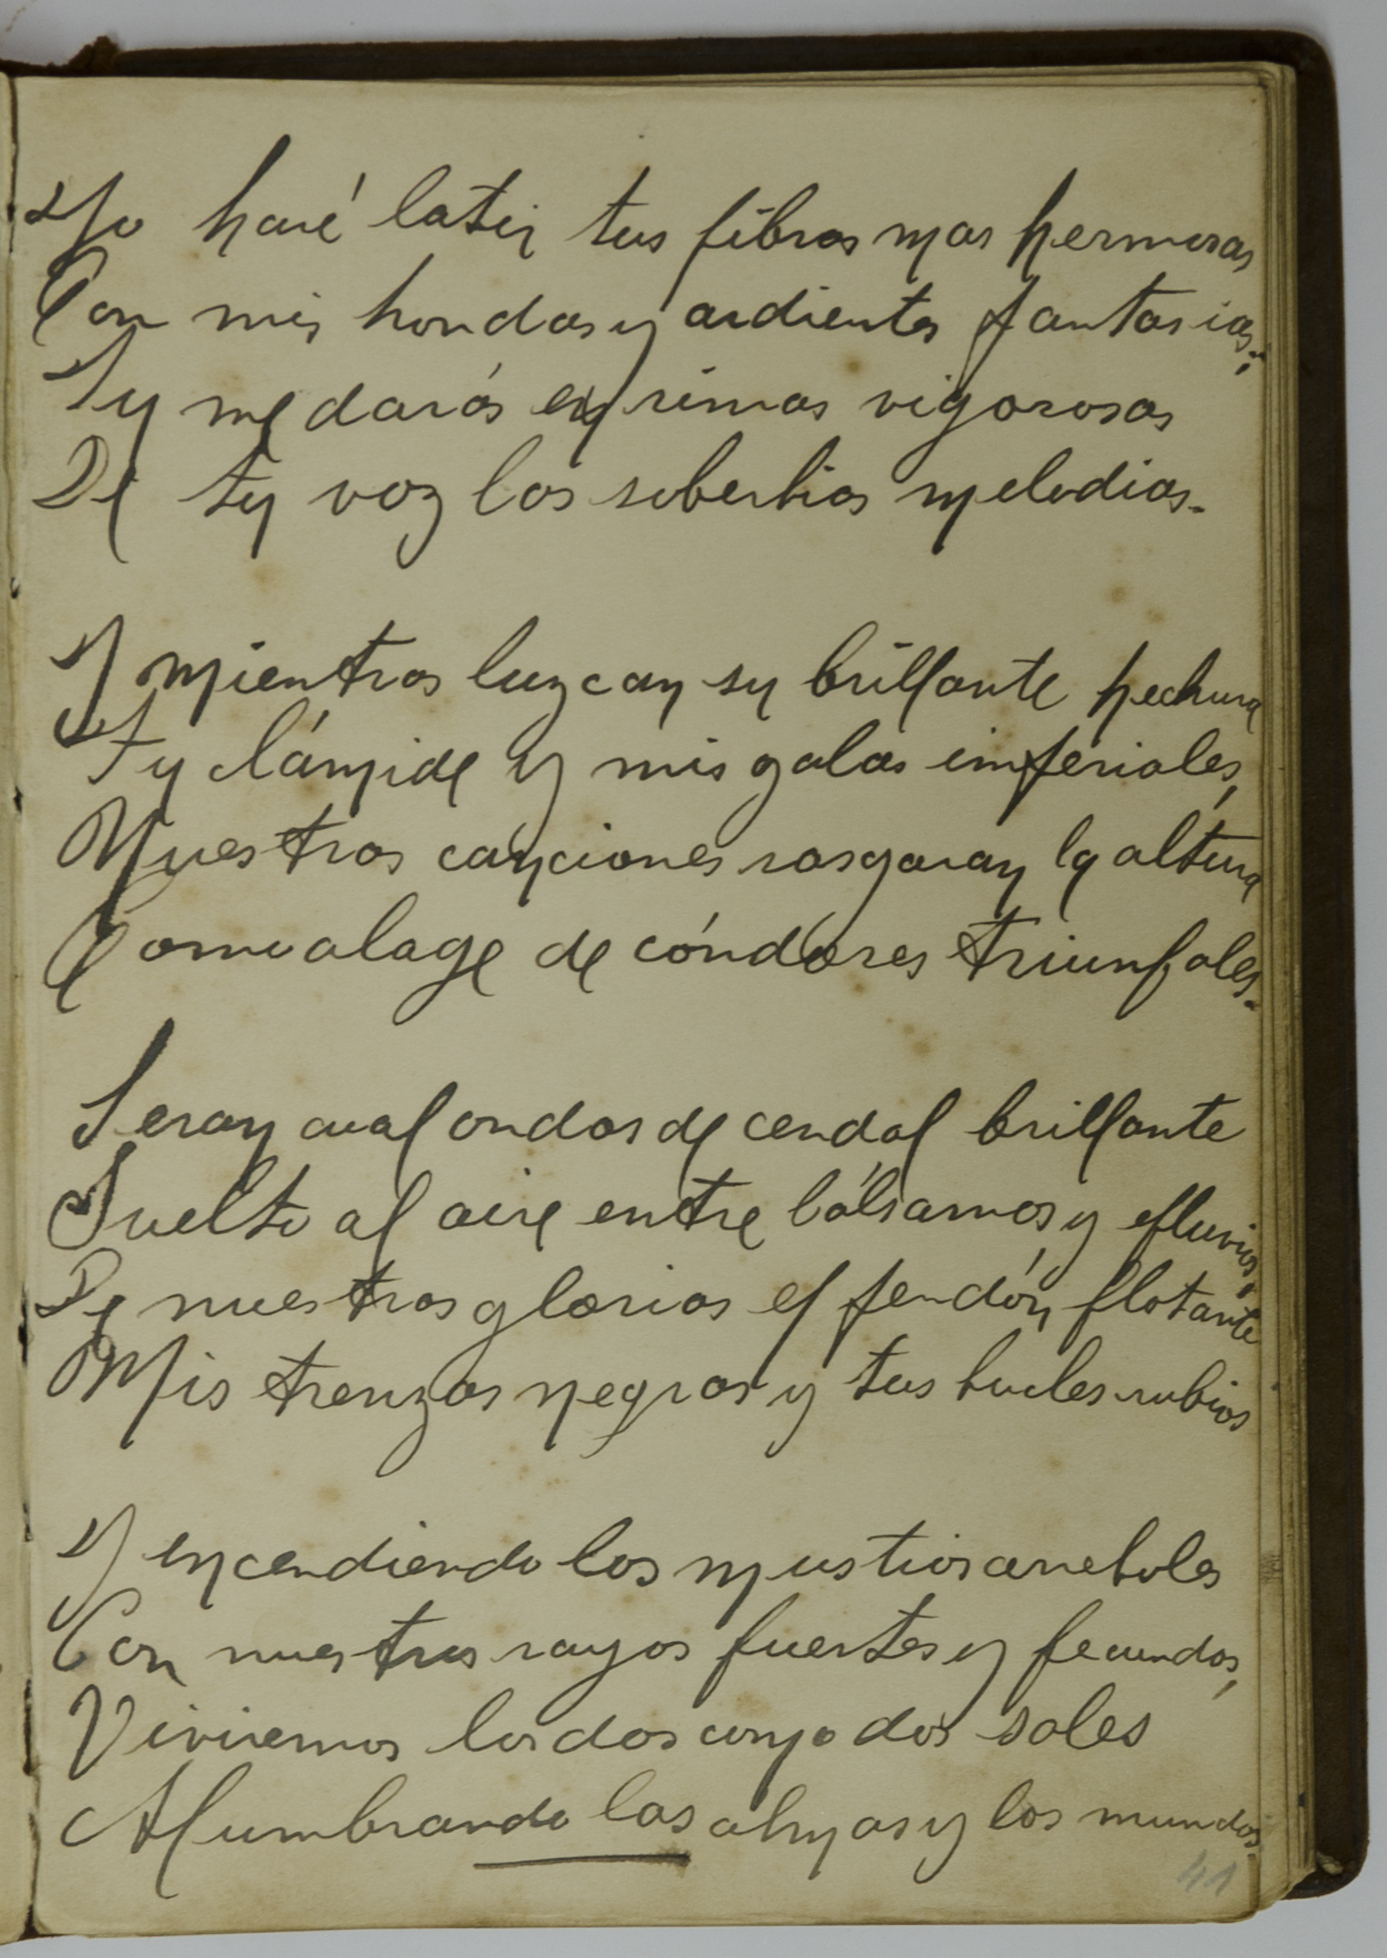 Yo haré latir tus fibras mas hermosas
Con mis hondas y ardientes fantasias;
Tu me darás en rimas vigorosas
De tu voz las soberbias melodias.
Y mientras luzcan su brillante hechura
Tu clámide y mis galas imperiales,
Nuestras canciones rasgaran la altura
Como alage de cóndores triunfales.
Seran cual ondas de cendal brillante
Suelto al aire entre bálsamos y efluvios,
De nuestras glorias el pendón flotante
Mis trenzas negras y tus bucles rubios
Y encendiendo los mustios arreboles
Con nuestros rayos fuertes y fecundos,
Viviremos los dos como dos soles
Alumbrando las almas y los mundos.
41